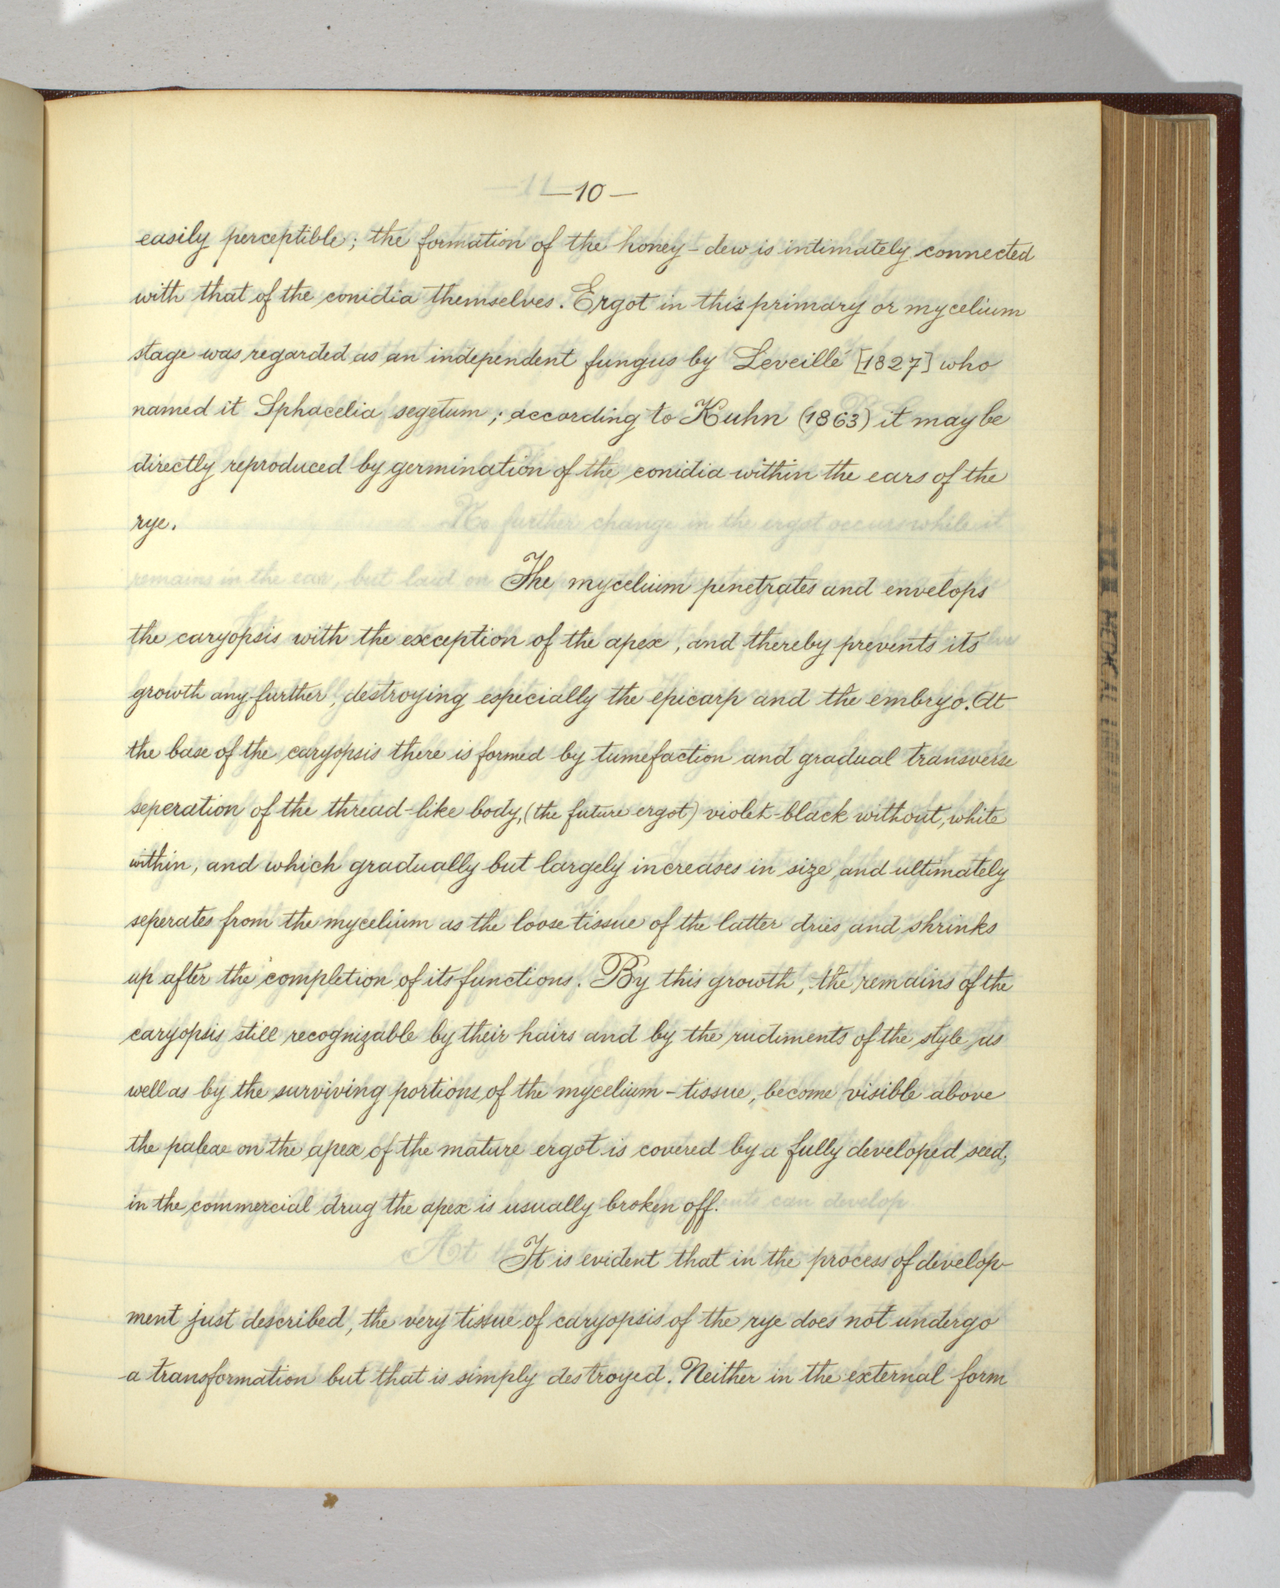 —10—
easily perceptible; the formation of the honey-dew is intimately connected
with that of the conidia themselves. Ergot in this primary or mycelium
stage was regarded as an independent fungus by Leveillé [1827] who
named it Sphacelia segetum; according to Kuhn (1863) it may be
directly reproduced by germination of the conidia within the ears of the
rye.
The mycelium penetrates and envelops
the caryopsis with the exception of the apex, and thereby prevents its
growth any further, destroying especially the epicarp and the embryo. At
the base of the caryopsis there is formed by tumefaction and gradual transverse
seperation of the thread-like body, (the future ergot) violet-black without, white
within, and which gradually but largely increases in size, and ultimately
seperates from the mycelium as the loose tissue of the latter dries and shrinks
up after the completion of its functions. By this growth, the remains of the
caryopsis still recognizable by their hairs and by the rudiments of the style, as
well as by the surviving portions, of the mycelium-tissue, become visible above
the paleae on the apex, of the mature ergot is covered by a fully developed seed,
in the commercial drug the apex is usually broken off.
It is evident that in the process of develop-
ment just described, the very tissue of caryopsis of the rye does not undergo
a transformation but that is simply destroyed. Neither in the external form